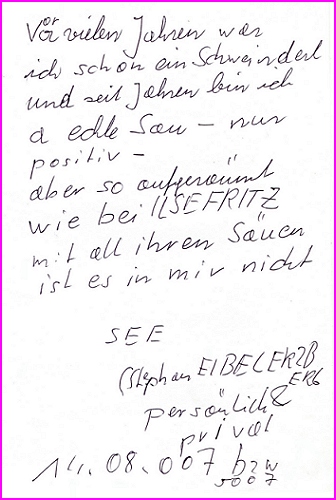 Vor vielen Jahren war
ich schon ein Schweinderl
und seit Jahren bin ich
a echte Sau – nur
positiv –
aber so aufgeräumt
wie bei ILSEFRITZ
mit all ihren Säuen
ist es in mir nicht
SEE
(Stephan EIBELERZB
ERG
persönlich &
privat
14.08.007 bzw
5007